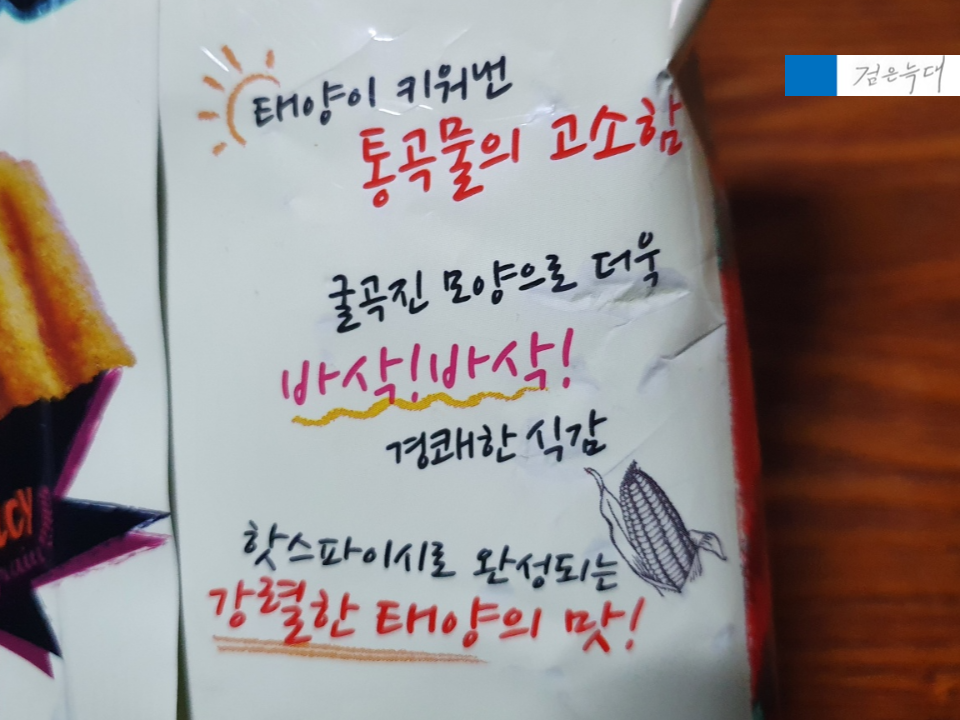 검은늑대
태양이 키워낸
통곡물의 고소함
굴곡진 모양으로 더욱
바삭!바삭!
경쾌한 식감
핫스파이시로 완성되는
강렬한 태양의 맛!